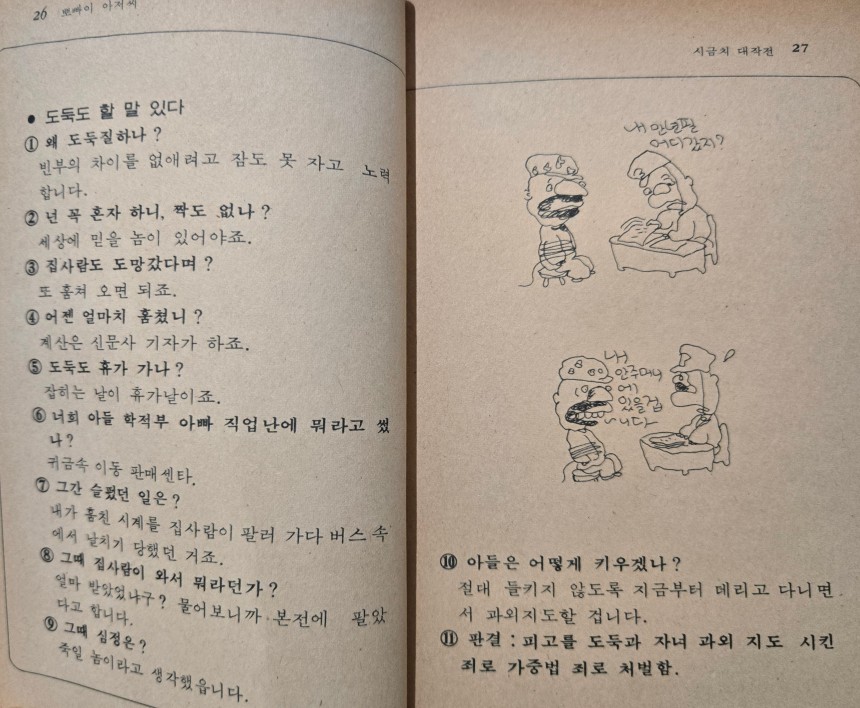 26 뽀빠이 아저씨
● 도둑도 할 말 있다
① 왜 도둑질하나?
빈부의 차이를 없애려고 잠도 못 자고 노력
합니다.
② 넌 꼭 혼자 하니, 짝도 없나?
세상에 믿을 놈이 있어야죠.
③ 집사람도 도망갔다며?
또 훔쳐 오면 되죠.
④ 어젠 얼마치 훔쳤니?
계산은 신문사 기자가 하죠.
⑤ 도둑도 휴가 가나?
잡히는 날이 휴가날이죠.
⑥ 너희 아들 학적부 아빠 직업난에 뭐라고 썼
나?
귀금속 이동 판매센타.
⑦ 그간 슬펐던 일은?
내가 훔친 시계를 집사람이 팔러 가다 버스 속
에서 날치기 당했던 거죠.
⑧ 그때 집사람이 와서 뭐라던가?
얼마 받았었냐구? 물어보니까 본전에 팔았
다고 합니다.
⑨ 그때 심정은?
죽일 놈이라고 생각했읍니다.
시금치 대작전 27
내 만년필
어디갔지?
내
안주머니
에
있을겁
니다
⑩ 아들은 어떻게 키우겠나?
절대 들키지 않도록 지금부터 데리고 다니면
서 과외지도할 겁니다.
⑪ 판결 : 피고를 도둑과 자녀 과외 지도 시킨
죄로 가중법 죄로 처벌함.